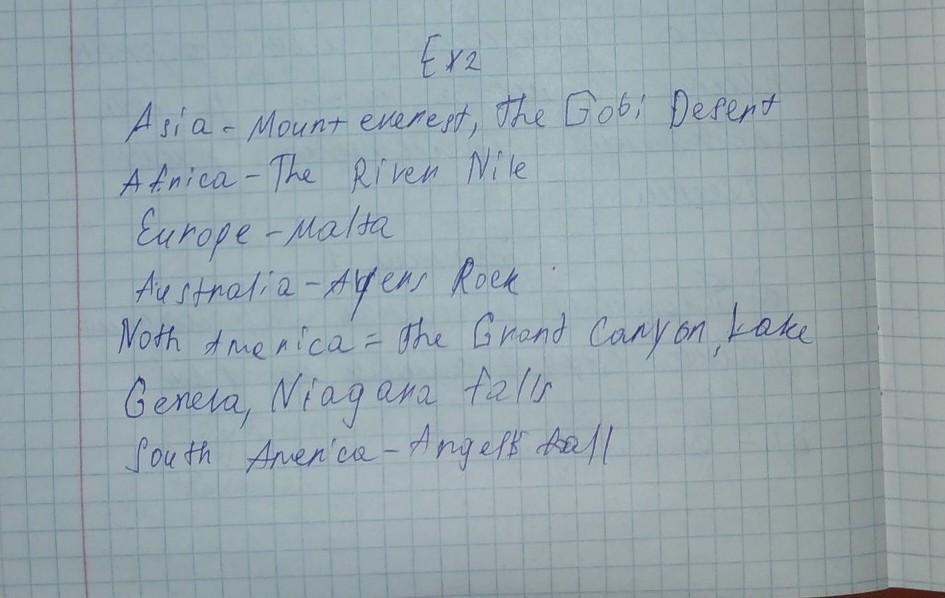 Ex2
Asia - Mount everest, the Gobi Desert
Africa - The River Nile
Europe - Malta
Australia - Ayers Rock
Noth America = the Grand Canyon, Lake
Geneva, Niagara falls
South America - Angels fall